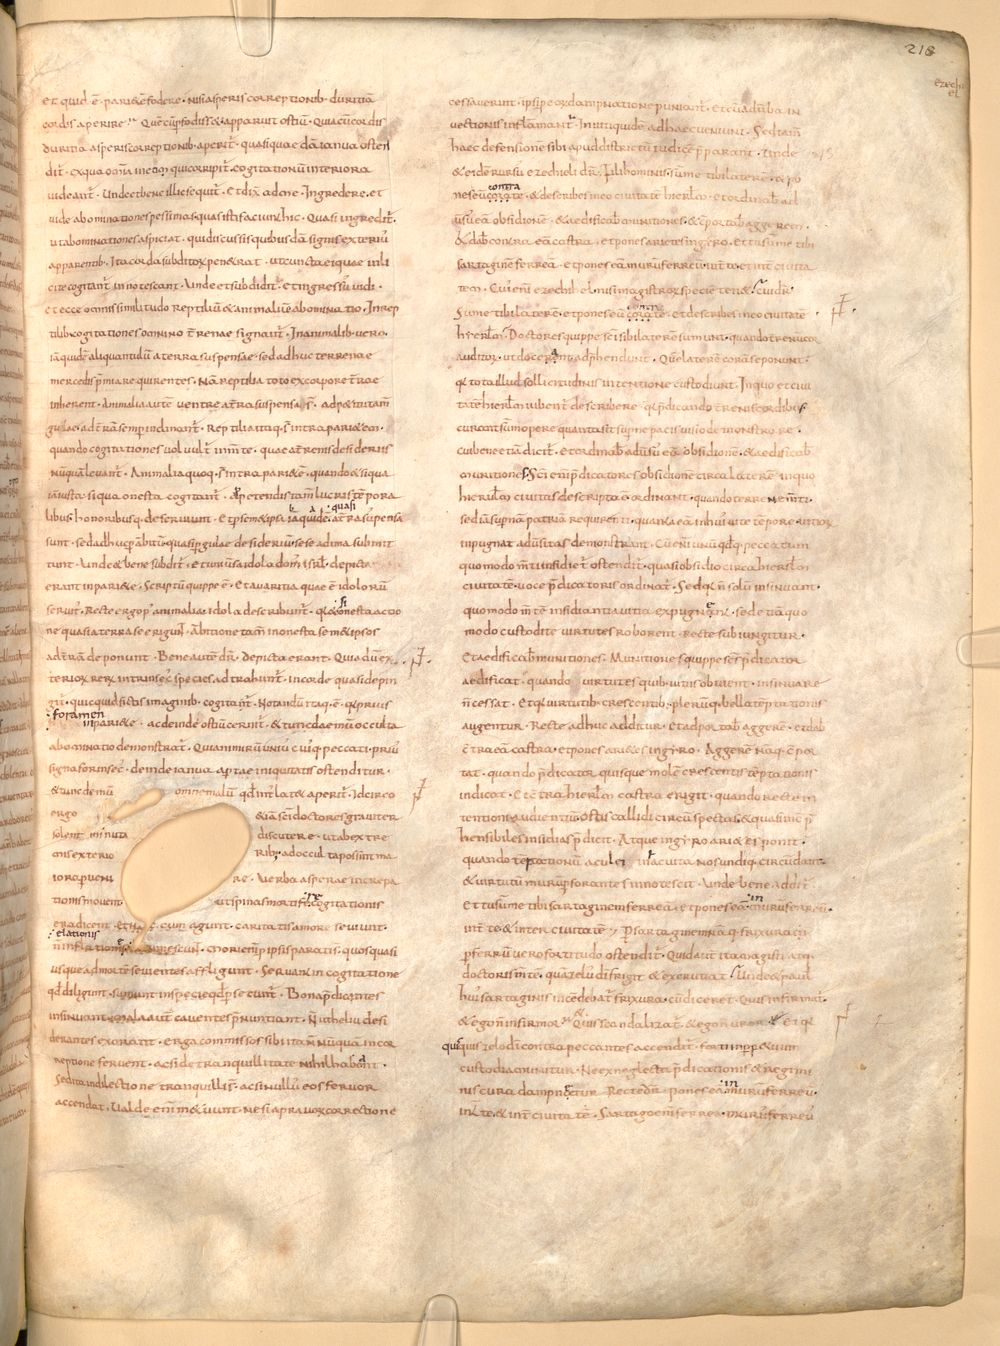 218
ezechi
el
et quid ē · parietē fodere · nisi asperis correptionib· duritiā
cordis aperire · Quē cū fodisset apparuit ostiū · Quia cū cordis
duritia asperis correptionib· aperit̄ · quasi quaedā ianua osten
dit̄ · Ex qua om̄ia in eo qui corripit̄ cogitationū interiora
videant̄ · Unde et bene illic sequit̄ · Et dix̄ ad me · Ingredere · et
vide abominationes pessimas quas isti faciunt hic · Quasi ingredit̄
ut abominationes aspiciat · qui discussis quibusdā signis exteriꝰ
apparentib· Ita corda subditoꝝ penetrat · ut cuncta ei quae illi
cite cogitant̄ innotescant · Unde et subdidit̄ · et ingressus vidi ·
et ecce omnis similitudo reptiliū & animaliū abominatio · In rep
tilib· cogitationes omnino t̄renae signant̄ · In animalib· vero ·
iā quidē aliquantulū a terra suspensae · sed adhuc terrenae
mercedis p̄mia requirentes · Nā reptilia toto ex corpore t̄rae
inherent · Animalia autē ventre a t̄ra suspensa s̄ ·
gulae · ad t̄rā semp inclinant̄ · Reptilia itaq· s̄ intra parietē ·
quando cogitationes volvunt̄ in m̄te · quae a t̄renis desideriis
nūquā levant̄ · Animalia quoq· s̄ intra parietē · quando & si qua
iā iusta · si qua onesta cogitant̄ · appetendis tam̄ lucris tēpora
libus · honoribusq· deserviunt · Et p semetipsa iā quidē · quasi a t̄ra suspensa
sunt · sed adhuc p ambitū quasi p gulae desideriū sese ad ima submit
tunt · Unde & bene subdit̄ · Et universa idola domꝰ isrl̄ · depicta
erant in pariete · Scriptū quippe ē · Et avaritia quae ē idoloꝝ
servit̄ · Recte ergo p animalia idola describunt̄ · q· & si onesta actio
ne quasi a terra se erigunt · Ambitione tam̄ inonesta semetipsos
ad t̄rā deponunt · Bene autē dr̄ · depicta erant · Quia dū ex
terioꝝ reꝝ intrinsecꝰ species adtrahunt̄ · in corde quasi depin
git̄ · quicquid fictis imaginib· cogitant̄ · Notandū itaq· ē · q· prius
foramen
in pariete · ac deinde ostiū cernit̄ · & tunc demū occulta
abominatio demonstrat̄ · Quia nimirū uniꝰ cuiꝰq· peccati · priꝰ
signa forinsecꝰ · deinde ianua aptae iniquitatis ostenditur ·
& tunc demū omne malū qd̄ int̄ latet aperit̄ · Idcirco
ergo etiā sc̄i doctores graviter
solent minuta discutere · ut ab extre
mis exterio rib· ad occulta possint ma
iora pveni re · Verba asperae increpa
tionis movent ut spinas mortiferae cogitationis
eradicent · Et hoc cum agunt · caritatis amore seviunt ·
elationis
n̄ inflatione · Mori enī p ipsis parati s̄ · quos quasi
usque ad morte sevientes affligunt · Servant in cogitatione
qd̄ diligunt · sumunt in specie qd̄ psecunt̄ · Bona p̄dicantes
insinuant · mala aut̄ caventes p̄nuntiant · N̄ ut heliꝰ desi
derantes exorant · erga commissos sibi tam̄ nūquā incor
reptione fervent · ac si de tranquillitate nihil habent ·
Sed ita in dilectione tranquilli s̄ · ac si nullꝰ eos fervor
accendat · Valde enī metuunt · ne si a pravoꝝ correctione
cessaverint · ipsi p eoꝝ dampnatione puniant̄ · Et cū ad verba in
vectionis inflāmant̄ · Inviti quidē ad haec veniunt · Sed tam̄
haec defensione sibi apud districtū iudicē p̄parant · Unde
& eidē rursū ezechieli dr̄ · Fili hominis · sume tibi laterē · & po
nes eū contra te · & describes in eo civitatē hierl̄m · et ordinab· ad
usū eā obsidionē · & aedificab· munitiones · & cōportab· aggerem ·
& dab· contra eā castra · et pones arietes in gyro · Et tu sume tibi
sartaginē ferreā · et pones eā murū ferreū int̄ te et int̄ civita
tem · Cuiꝰ enī ezechihel nisi magistroꝝ speciē tenet · cui dr̄ ·
Sume tibi laterē · et pones eū contra te · Et describes in eo civitatē
hyerl̄m · Doctores quippe sc̄i sibi laterē sumunt · quando t̄renū cor
auditoꝝ · ut doceant adp̄hendunt · Quē laterē corā se ponunt ·
q· tota illud sollicitudinis intentione custodiunt · In quo et civi
tatē hierl̄m iubent̄ describere · q· p̄dicando t̄renis cordibus
curant summopere quanta sit supne pacis visio demonstrare ·
Cui bene etiā dicit̄ · Et ordinab· adūsū eā obsidionē · & aedificab·
munitiones · Sc̄i enī p̄dicatores obsidionē circa laterē in quo
hierl̄m civitas descripta ē ordinant · quando terrene m̄ti ·
sed iā supnā patriā requirenti · quanta eā in hui vite tēpore · vitioꝝ
inpugnat adūsitas demonstrant · Cū enī unū qd̄q· peccatum
quomodo m̄ti insidiet̄ ostendit̄ · quasi obsidio circa hierl̄m
civitatē · voce p̄dicatoris ordinat̄ · Sed q· n̄ solū insinuant ·
quomodo m̄tē insidiantia vitia expugnent · sed etiā quo
modo custodite virtutes roborent · Recte subiungitur ·
Et aedificab· munitiones · Munitiones quippe sc̄s p̄dicator
aedificat · quando virtutes quib· vitiis obvient · insinuare
n̄ cessat · Et q· virtutib· crescentib· plerūq· bella tēptationis
augentur · Recte adhuc additur · Et adportab· aggerē · et dab·
c̄tra eā castra · et pones arietes in gyro · Aggerē naq· cōpor
tat · quando p̄dicator quisque molē crescentis tēptationis
indicat · Et c̄tra hierl̄m castra erigit · quando recte in
tentionis audientiū · hostis callidi circūspectas & quasi incōp̄
hensibiles insidias p̄dicit · Atque in gyro arietes ponit ·
quando temptationū aculei · in acuta nos undiq· circūdant ·
& virtutū murū pforantes innotescit · Unde bene addit̄ ·
Et tu sume tibi sartaginē ferreā · et pones eā in murū ferreū ·
int̄ te & inter civitatē · P sartaginē naq· frixura ·
p ferrū vero fortitudo ostendit̄ · Quid aūt ita magistri atq·
doctoris m̄tē · quā zelus dī frigit & excruciat · Unde & paulꝰ
huiꝰ sartaginis incedebat̄ frixura · cū diceret · Quis infirmat̄ ·
& ego n̄ infirmor · Quis scandalizat̄ · & ego n̄ uror · Et q·
quisquis zelo dī contra peccantes accendit̄ · forti inppetuum
custodia munitur · Ne ex neglecta p̄dicationis & regimi
nis cura dampnetur · Recte dr̄ · pones eā in murū ferreū ·
int̄ te & int̄ civitatē · Sartago enī ferrea · murū ferreū